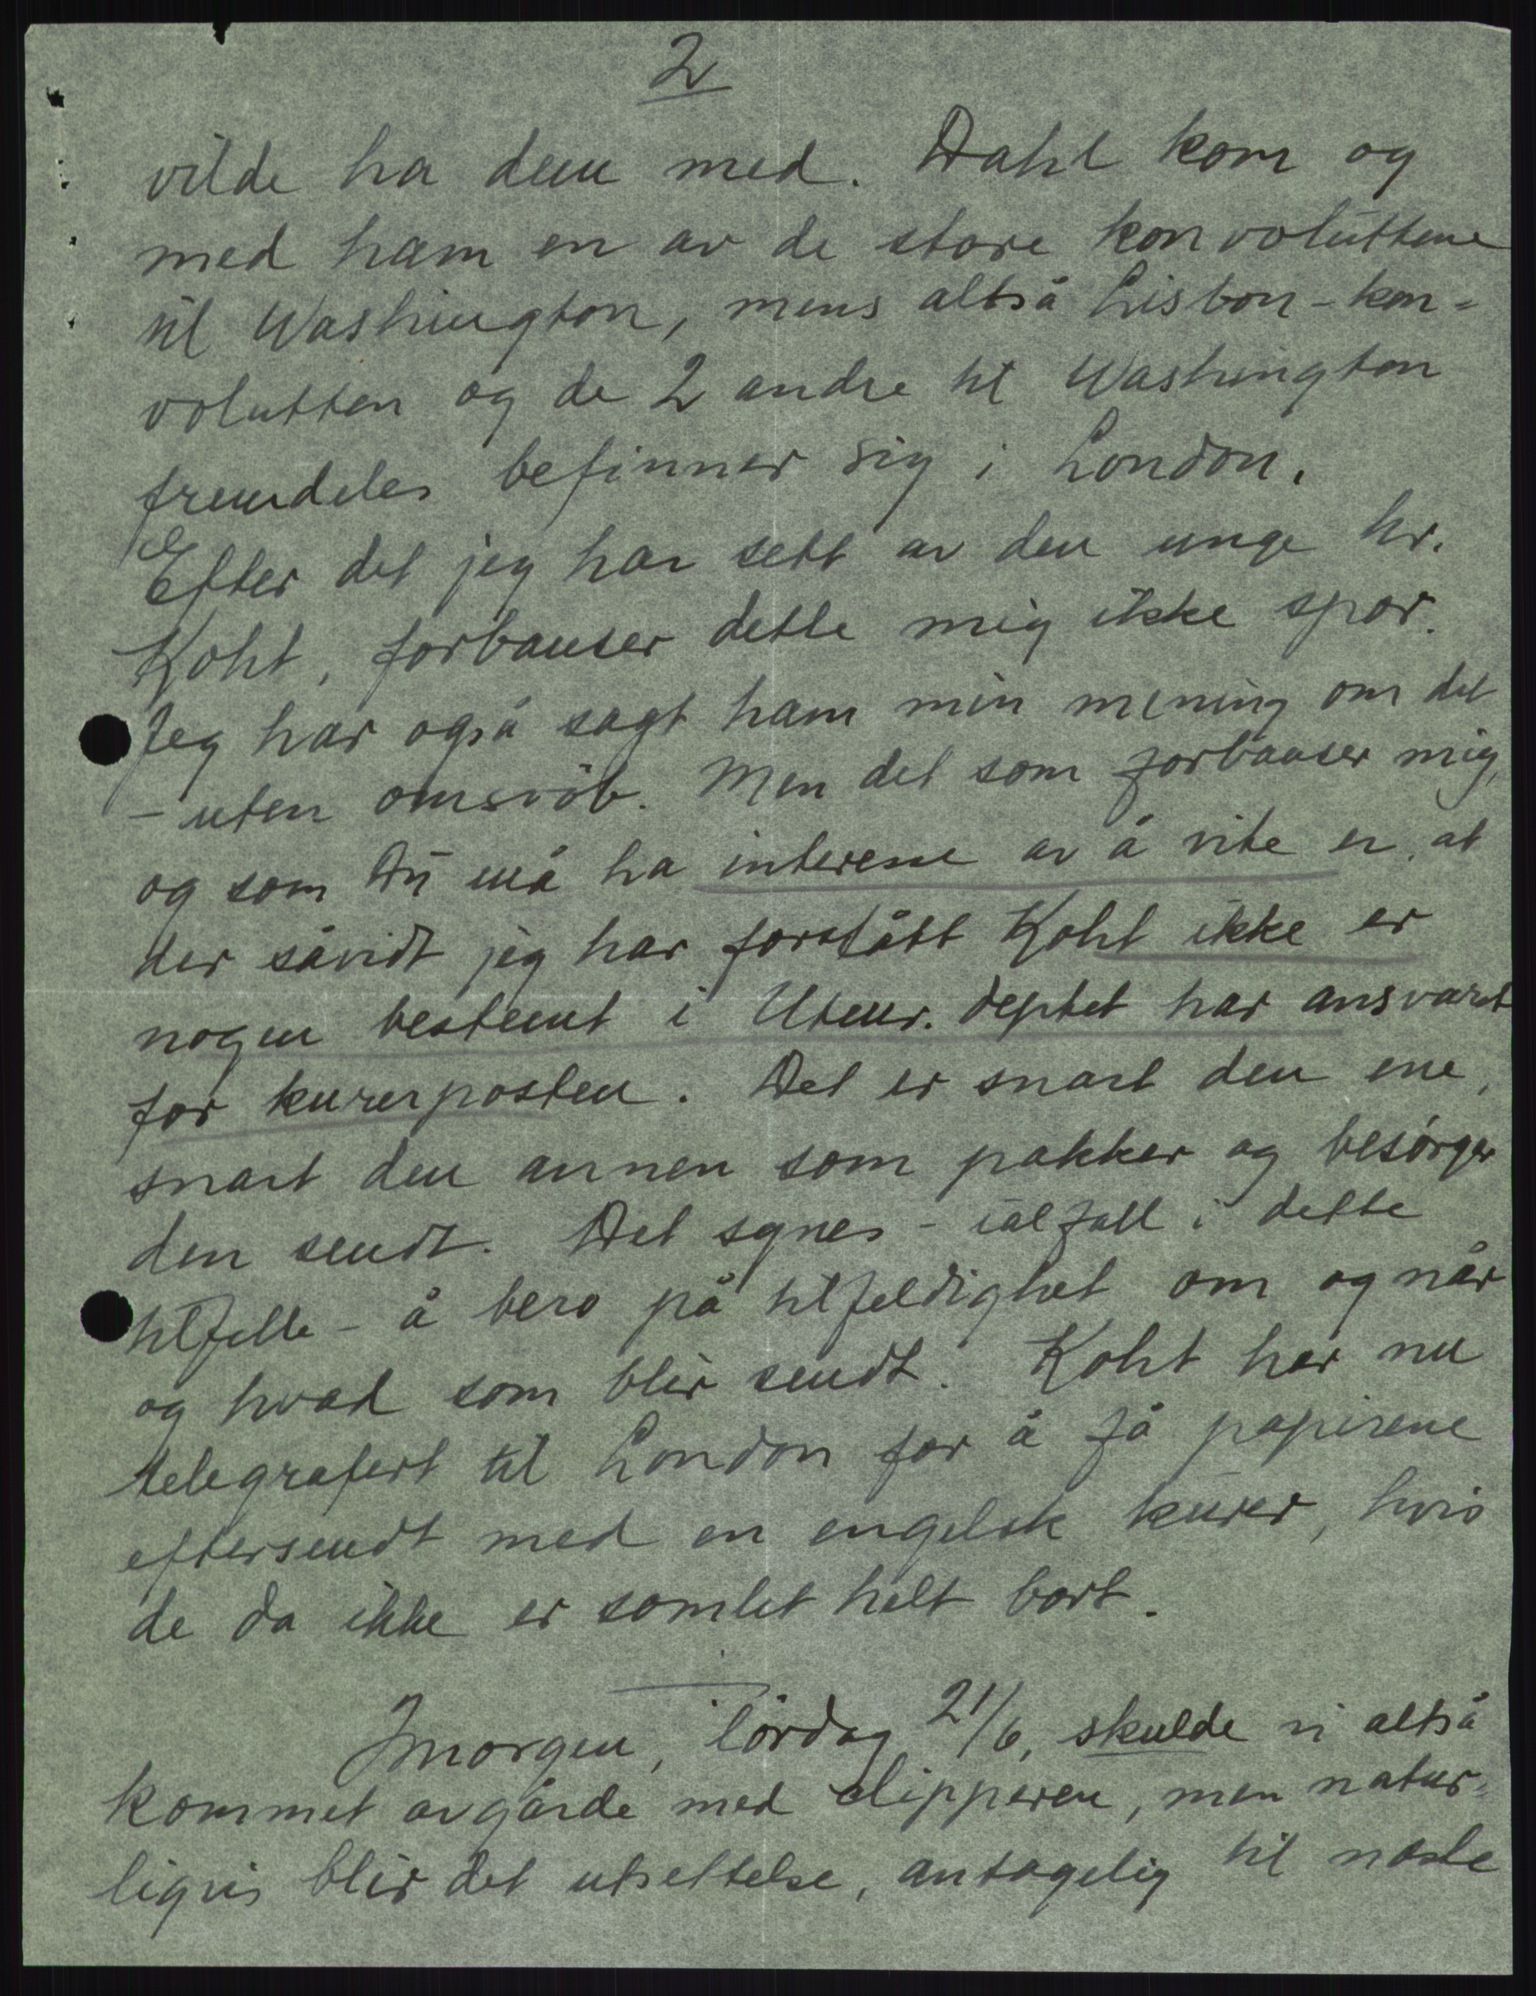 2
vilde ha dem med. Dahl kom og
med ham en av de store konvoluttene
til Washington, mens altså Lisbon-kon-
volutten og de 2 andre til Washington
fremdeles befinner sig i London.
Efter det jeg har sett av den unge hr.
Koht, forbauser dette mig ikke spor.
Jeg har også sagt ham min mening om det
- uten omsvöb. Men det som forbauser mig,
og som Du må ha interesse av å vite er, at
der såvidt jeg har forstått Koht ikke er
nogen bestemt i Utenr. deptet har ansvaret
for kurerposten. Det er snart den ene,
snart den annen som pakker og besörger
den sendt. Det synes - ialfall i dette
tilfelle - å bero på tilfeldighet om og når
og hvad som blir sendt. Koht har nu
telegrafert til London for å få papirene
eftersendt med en engelsk kurer, hvis
de da ikke er somlet helt bort.
Imorgen, lördag 21/6, skulde vi altså
kommet avgårde med clipperen, men natur-
ligvis blir det utsettelse, antagelig til næste